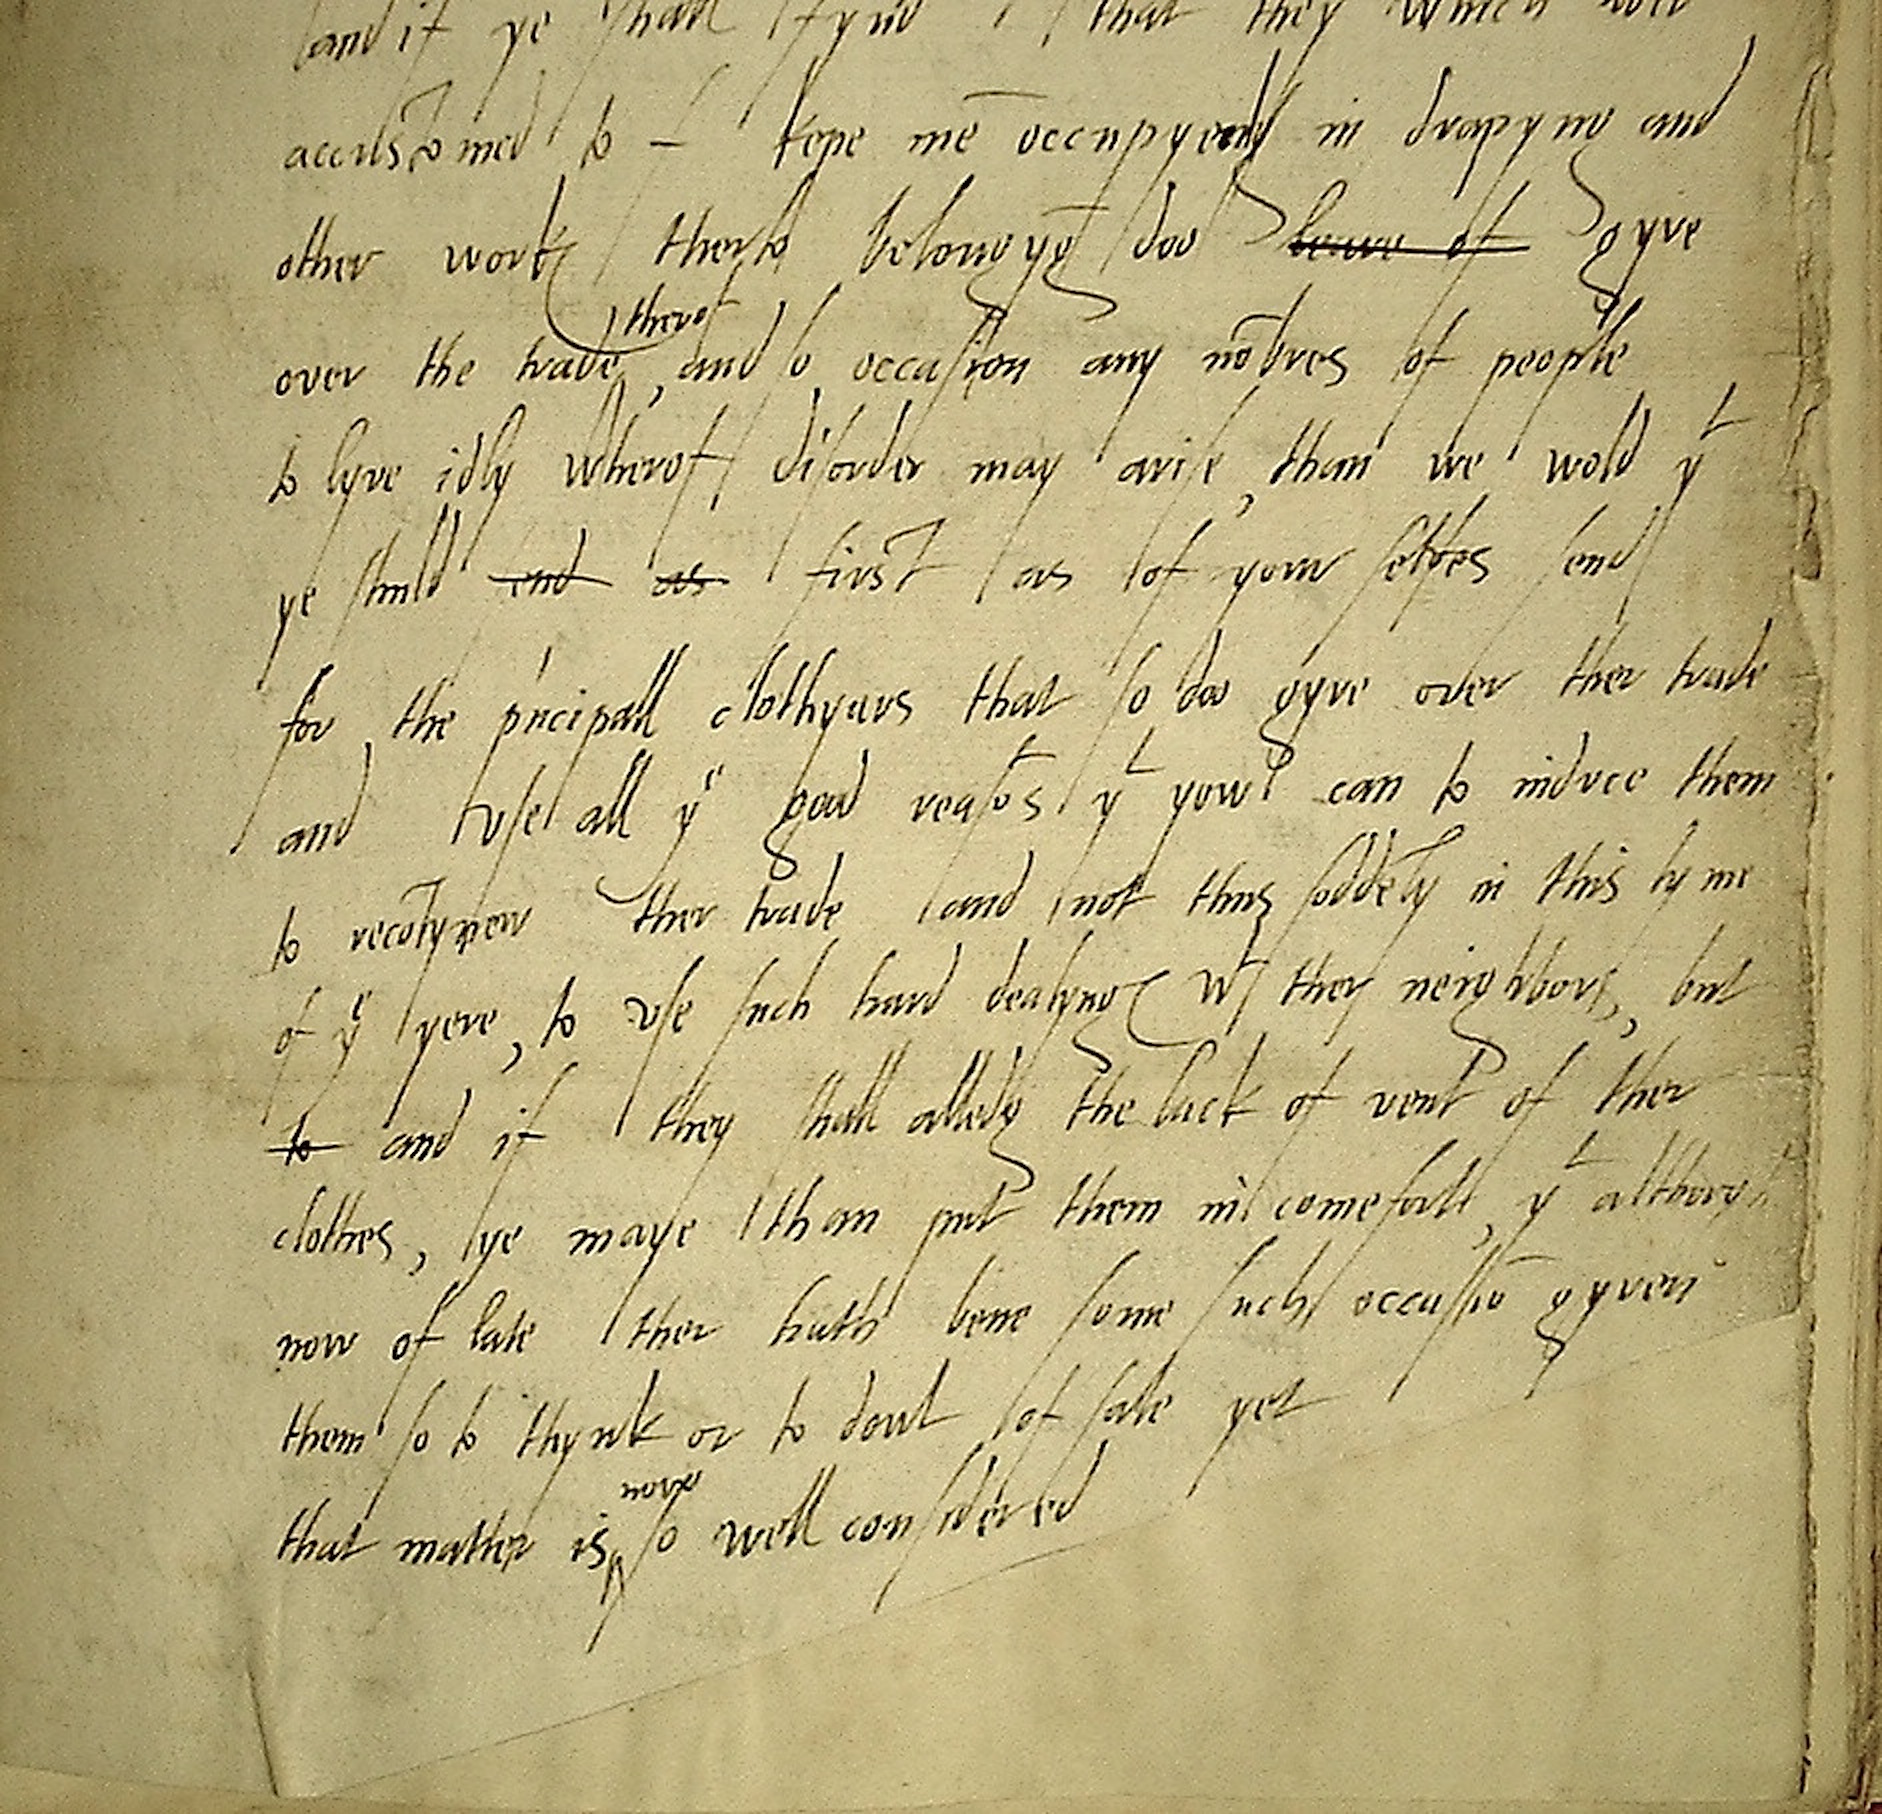 and if ye shall fynd that they which wer
accustomed to – kepe mē occupyed in drapyng and
other work therto belongyg doo leave of gyve
over the trade, therof and so occasion any nōbres of people
to lyve idly wherof disorder may arise, than we wold yt
ye shuld end as first as of your selves send
for the pncipall clothyars that so doo gyve over ther trade
and use all ye good reasōs yt yow can to induce them
to recōtynew ther trade and not thus soddēly in this tyme
of ye yere, to use such hard dealyng wt they neighbors, but
to and if they shall alledg the lack of vent of ther
clothes, ye maye than put them in comefort, yt although
now of late ther hath bene some such occasiō gyven
them so to thynk or to dout of sale yet
that matter is now so well considered